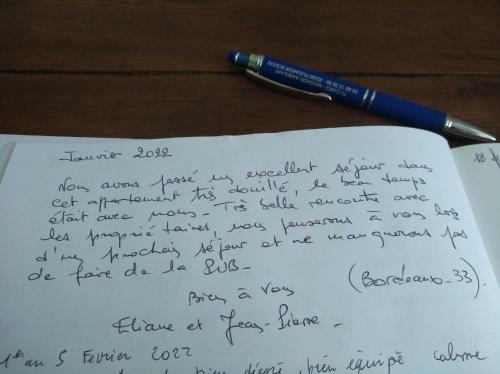 TY CARO - MAGASIN AMBULANT
22560 PLEUMEUR BODOU
Janvier 2022
18 f
Nous avons passé un excellent séjour dans
cet appartement très douillé, le beau temps
était avec nous - Très belle rencontre avec
les propriétaires, nous penserons à vous lors
d'un prochain séjour et ne manquerons pas
de faire de la PUB -
(Bordeaux - 33).
Bien à vous
Eliane et Jean-Pierre -
1er au 5 Février 2022
bien décoré, bien équipé calme